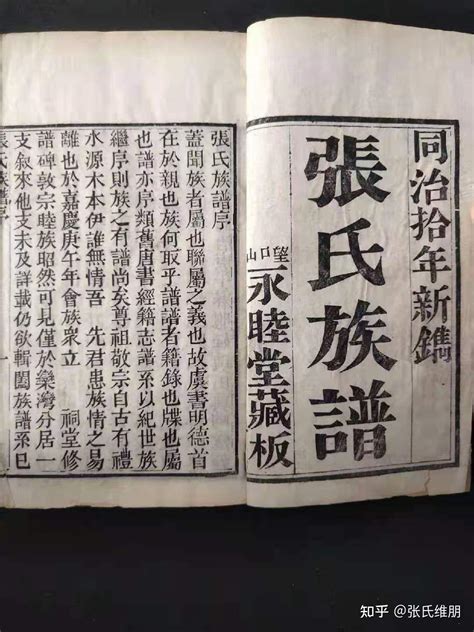 同治拾年新鐫
張氏族譜
望口山
永睦堂藏板
張氏族譜序
蓋聞族者屬也聯屬之義也故虞書明德首
在於親也族何取乎譜譜者籍錄也牒也屬
也譜亦序類舊唐書經籍志譜系以紀世族
繼序則族之有譜尚矣尊祖敬宗自古有禮
水源木本伊誰無情吾 先君患族情之易
離也於嘉慶庚午年會族衆立 祠堂修
譜碑敦宗睦族昭然可見僅於欒灣分居一
支叙來他支未及詳載仍欲輯闔族譜系巳
張氏族譜序 一
知乎 @张氏维朋